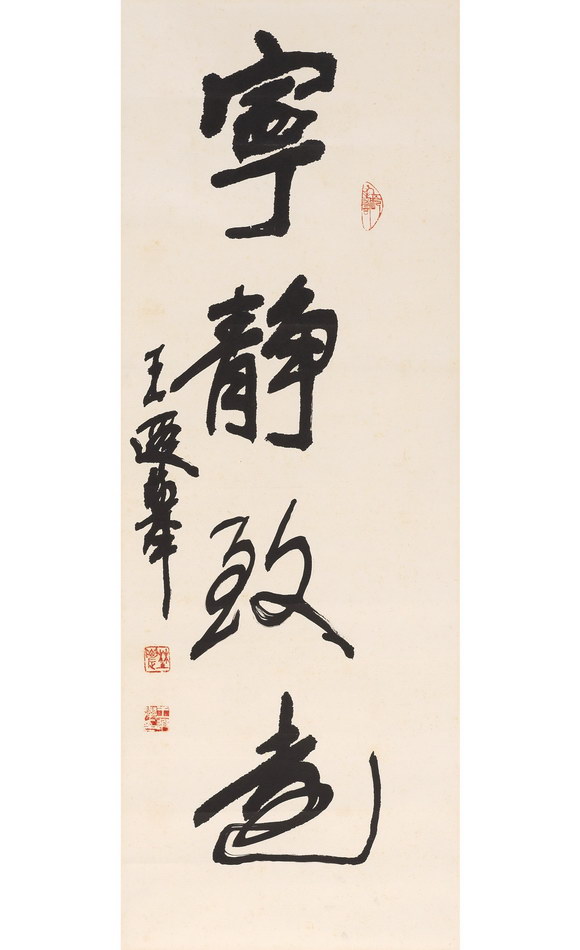 寧靜致遠
王遐舉